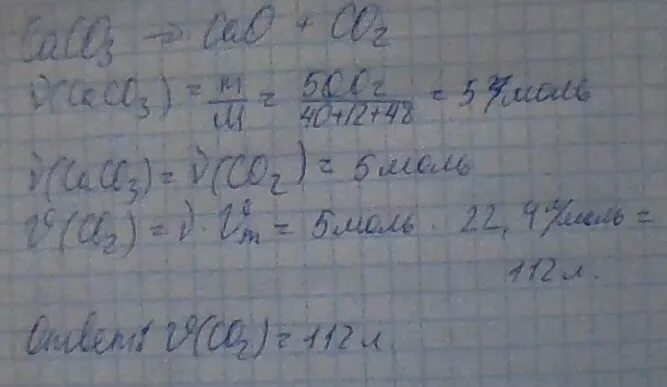 CaCO₃ → CaO + CO₂
ν(CaCO₃) = m/M = 500г/40+12+48 = 5 г/моль
ν(CaCO₃) = ν(CO₂) = 5 моль
V(CO₂) = ν · Vm = 5 моль · 22,4 л/моль =
112 л.
Ответ: V(CO₂) = 112 л.